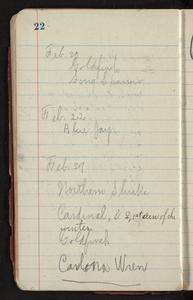 22
Feb. 20
Goldfinch
Song Sparrow
Feb. 22
Blue Jay
Feb. 27
Northern Shrike
Cardinal, of the
winter
Goldfinch
Carolina Wren